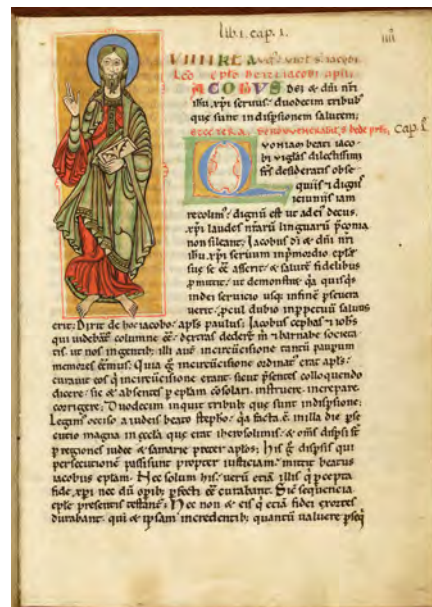 lib. 1. cap. 1.
iiii
IACOBVS dei & dñi nri
ihu xpi seruus, duodecim tribub;
que sunt in dispsione salutem;
cap. 1.
Qvoniam beati iaco
bi uigilias dilectissimi
frs desideratis obse
quiis & dignis
ieiuniis iam
recolim; dignū est ut ad ei decus,
xpi laudes nrarū linguarū pconia
non sileant; Iacobus di & dñi nri
ihu xpi seruum in pmordio eplę
suę se ēē asserit, & salutē fidelibus
pmittit, ut demonstret qa quisqs
indei seruicio usq; infinē pseuera
uerit, pcul dubio inppetuū saluus
erit; Dicit de hoc iacobo apls paulus; Iacobus cephas & iohs
qui uidebant columne ēē, dextras dederē m & barnabe societa
tis ut nos ingentib; illi autē incircūcisione tantū pauperum
memores ēēmus; Quia g incircūcisione ordinat erat apls,
curauit eos q incircūcisione erant, sicut psentes colloquendo
docere, sic & absentes p eplam cōsolari, instruere, increpare
corrigere; Duodecim inquit tribub; que sunt indispsione;
Legim; occiso a iudeis beato stepho, qa facta ē in illa die pse
cutio magna in eccla que erat iherosolimis, & oms dispsi st
p regiones iudeę & samarię preter aplos; His g dispsis qui
persecutionē passi sunt propter iusticiam, mittit beatus
iacobus eplam; Nec solum his, uerū etiā illis q pcepta
fide xpi nec dū opib; pfecti ēē curabant. Sic sequencia
eplę presentis testant; Nec non & eis q etiā fidei exortes
durabant, qui & ipsam in credentib; quantū ualuere pseq